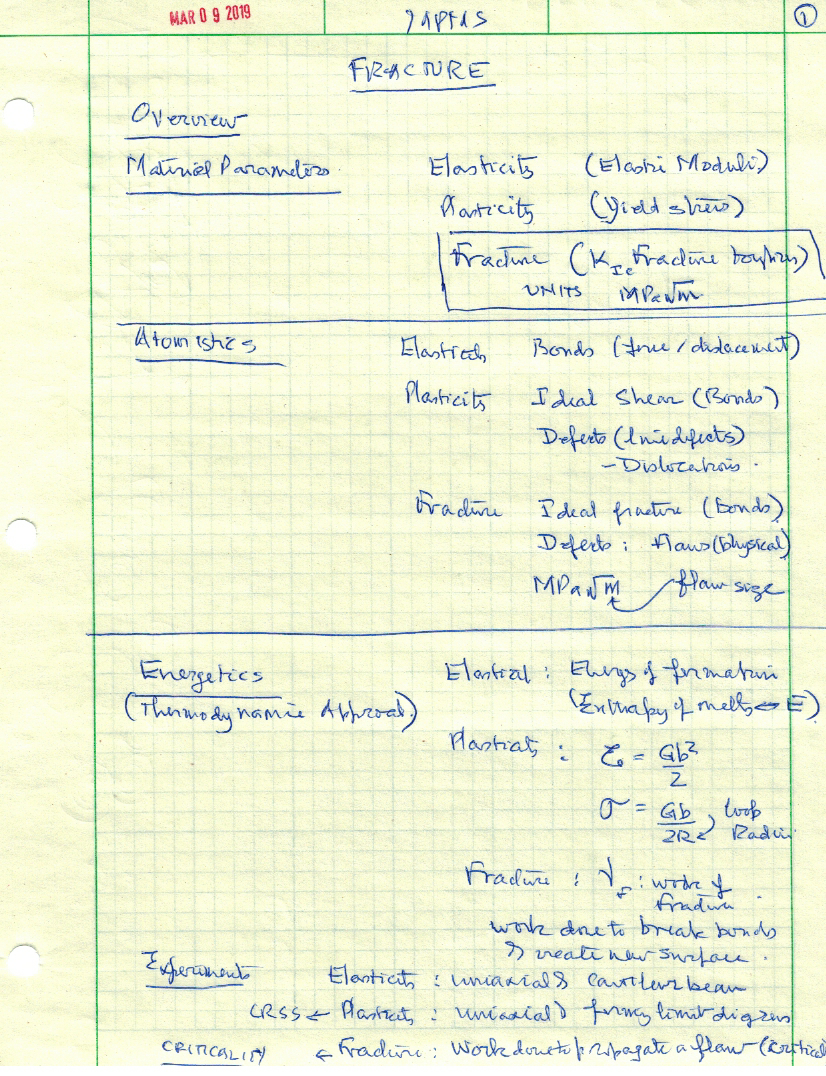 MAR 09 2019
1
FRACTURE
Overview
Material Parameters
Elasticity (Elastic Moduli)
Plasticity (Yield stress)
Fracture (K_Ic Fracture toughness)
UNITS MPa√m
Atomistics
Elasticity Bonds (force / displacement)
Plasticity Ideal Shear (Bonds)
Defects (line defects)
- Dislocations.
Fracture Ideal fracture (Bonds)
Defects : flaws (physical)
MPa√m flaw size
Energetics
(Thermodynamic Approach)
Elastical : Energy of formation
(Enthalpy of melting ↔ E)
Plasticity : ε = Gb²/2
σ = Gb/2R loop
Radius
Fracture : γ : work of
Fracture
work done to break bonds
& create new surface.
Experiments
Elasticity : uniaxial & cantilever beam
CRSS ← Plasticity : uniaxial forming limit diagrams
CRITICALITY ← Fracture : Work done to propagate a flaw (Critical